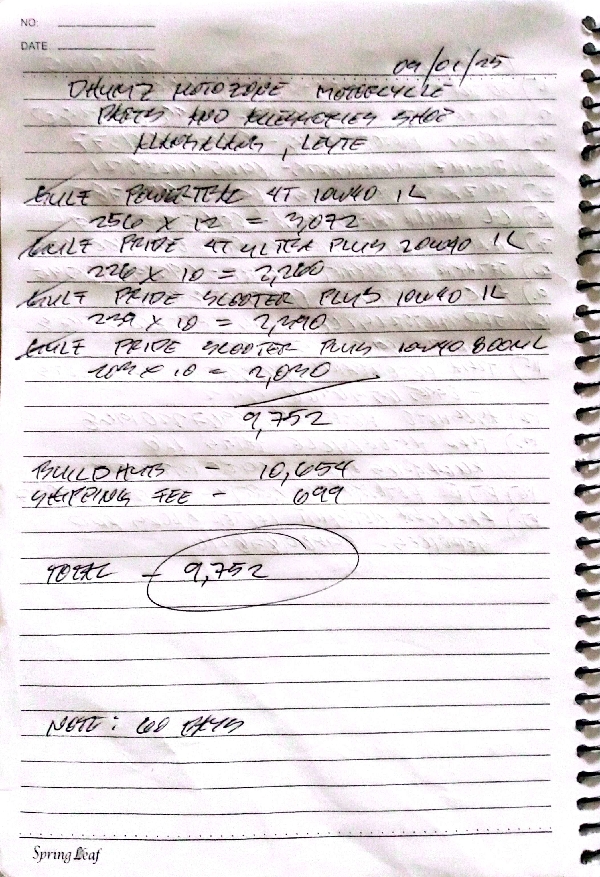 NO:
DATE
09/01/25
DHUMZ MOTOZONE MOTORCYCLE
PARTS AND ACCESSORIES SHOP
ALANGALANG, LEYTE
GULF POWERTRAC 4T 10W40 1L
256 X 12 = 3,072
GULF PRIDE 4T ULTRA PLUS 20W40 1L
226 X 10 = 2,260
GULF PRIDE SCOOTER PLUS 10W40 1L
239 X 10 = 2,390
GULF PRIDE SCOOTER PLUS 10W40 800ML
203 X 10 = 2,030
9,752
BUILDHUB - 10,654
SHIPPING FEE - 699
TOTAL - 9,752
NOTE: 60 DAYS
Spring Leaf